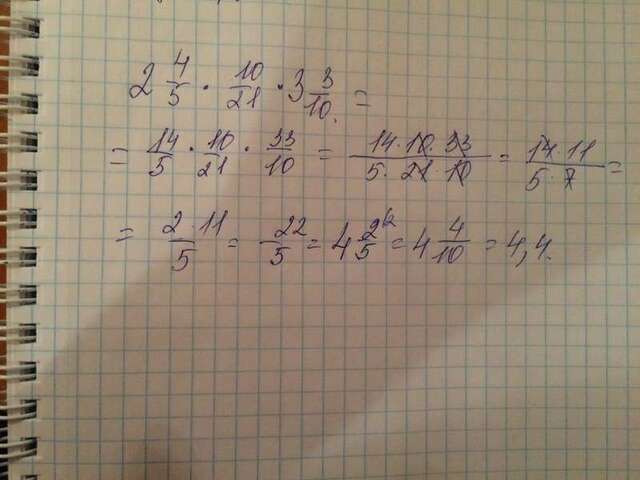 2 4/5 · 10/21 · 3 3/10 =
= 14/5 · 10/21 · 33/10 = 14·10·33/5·21·10 = 14·11/5·7 =
= 2·11/5 = 22/5 = 4 2/5 ^(2 = 4 4/10 = 4,4.